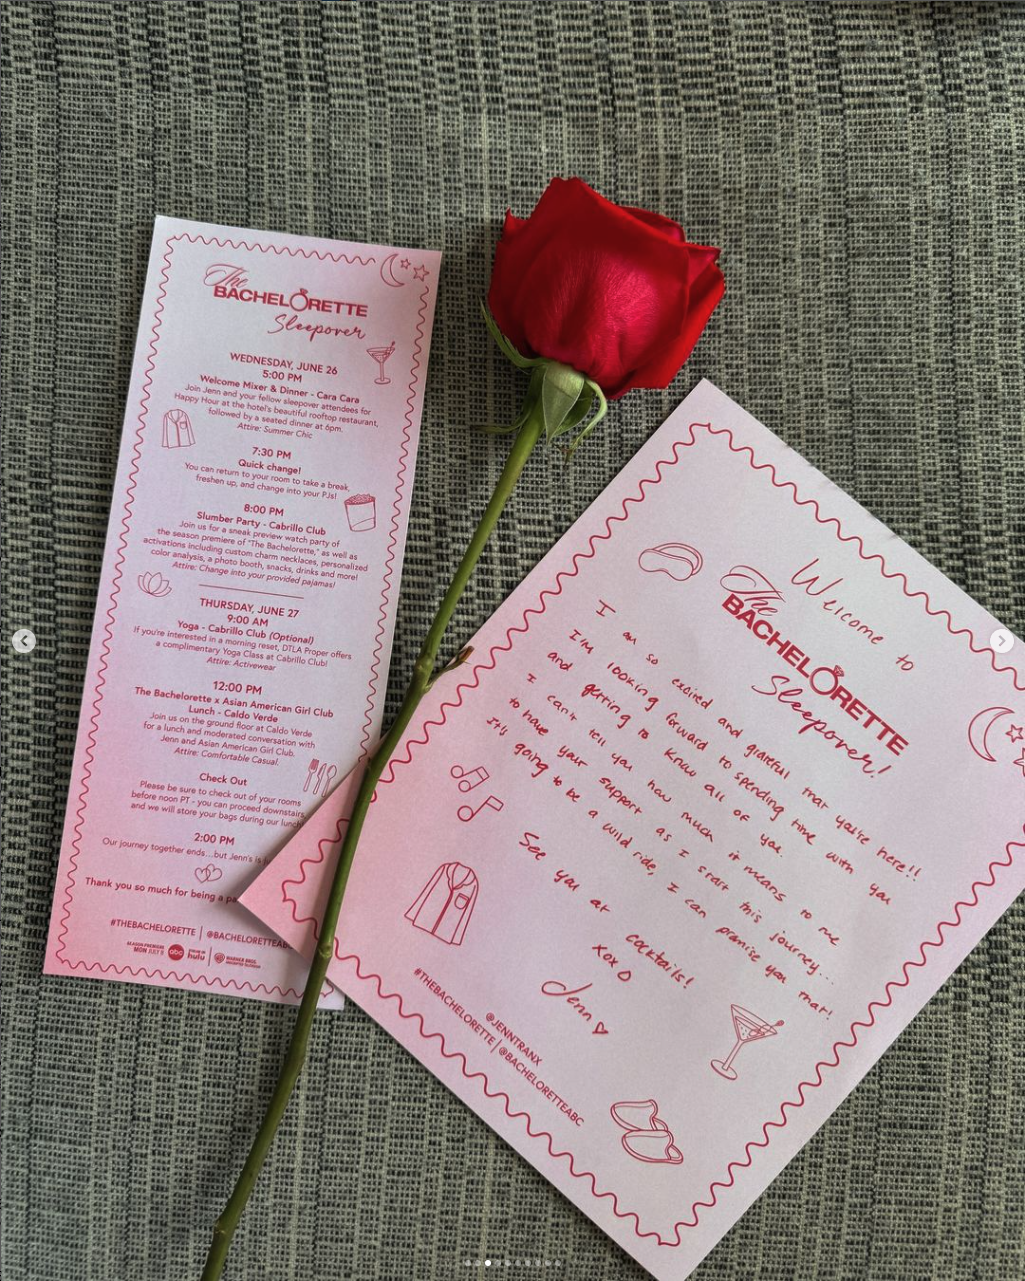 The
BACHELORETTE
Sleepover
WEDNESDAY, JUNE 26
5:00 PM
Welcome Mixer & Dinner - Cara Cara
Join Jenn and your fellow sleepover attendees for
Happy Hour at the hotel's beautiful rooftop restaurant,
followed by a seated dinner at 6pm.
Attire: Summer Chic
7:30 PM
Quick change!
You can return to your room to take a break,
freshen up, and change into your PJs!
8:00 PM
Slumber Party - Cabrillo Club
Join us for a sneak preview watch party of
the season premiere of "The Bachelorette," as well as
activations including custom charm necklaces, personalized
color analysis, a photo booth, snacks, drinks and more!
Attire: Change into your provided pajamas!
THURSDAY, JUNE 27
9:00 AM
Yoga - Cabrillo Club (Optional)
If you're interested in a morning reset, DTLA Proper offers
a complimentary Yoga Class at Cabrillo Club!
Attire: Activewear
12:00 PM
The Bachelorette x Asian American Girl Club
Lunch - Caldo Verde
Join us on the ground floor at Caldo Verde
for a lunch and moderated conversation with
Jenn and Asian American Girl Club.
Attire: Comfortable Casual.
Check Out
Please be sure to check out of your rooms
before noon PT - you can proceed downstairs,
and we will store your bags during our lunch
2:00 PM
Our journey together ends...but Jenn's is
Thank you so much for being a
#THEBACHELORETTE | @BACHELORETTEABC
SEASON PREMIERE
MON JULY 8
abc
hulu
WARNER BROS.
Welcome to
The
BACHELORETTE
Sleepover!
I am so excited and grateful that you're here!!
I'm looking forward to spending time with you
and getting to know all of you.
I can't tell you how much it means to me
to have your support as I start this journey...
It's going to be a wild ride, I can promise you that!
See you at cocktails!
xoxo
Jenn
@JENNTRANX
#THEBACHELORETTE | @BACHELORETTEABC